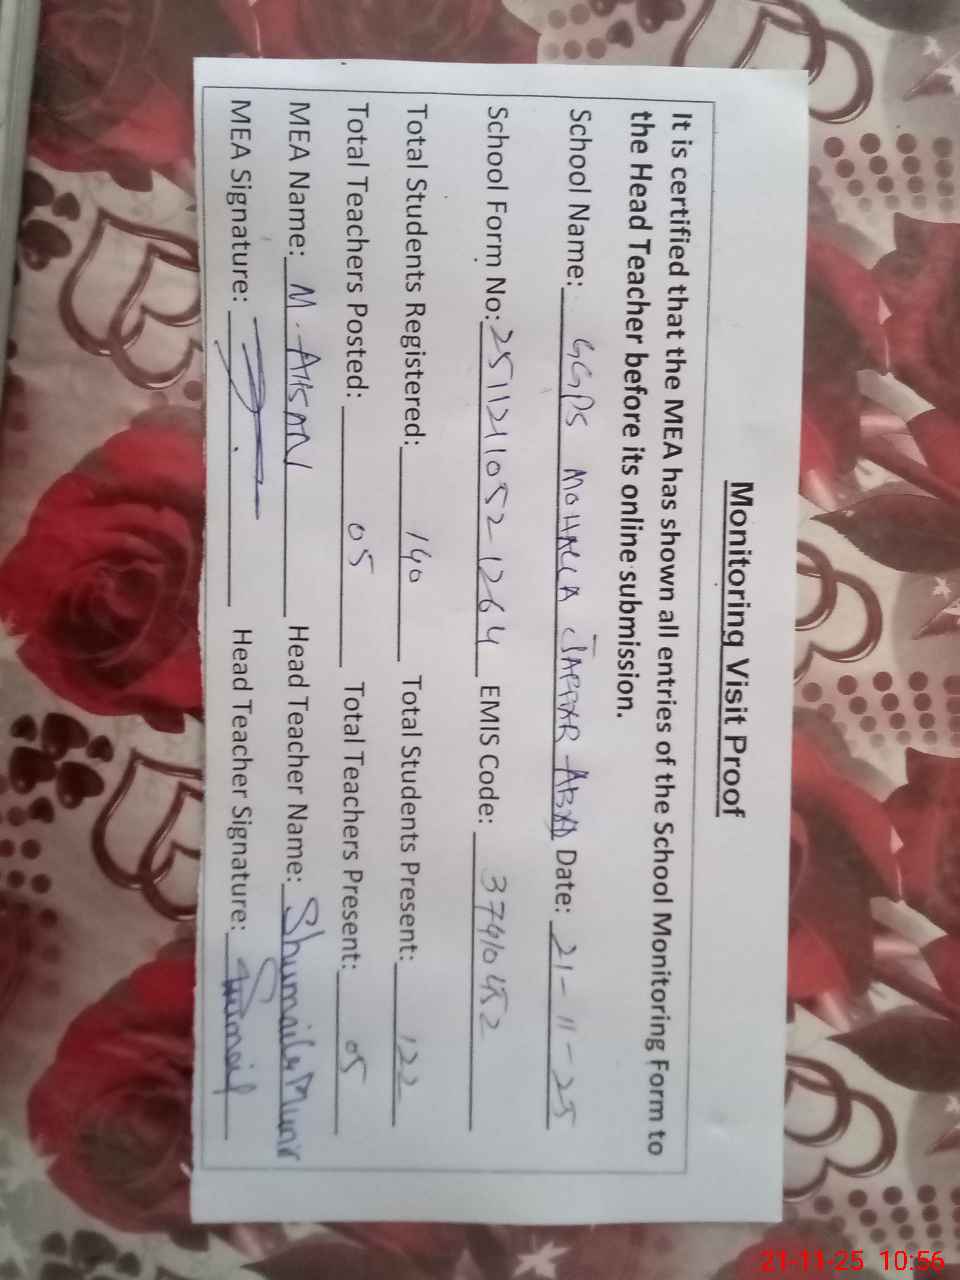 Monitoring Visit Proof
It is certified that the MEA has shown all entries of the School Monitoring Form to
the Head Teacher before its online submission.
School Name: GGPS MOHALLA JAFFAR ABAD Date: 21-11-25
School Form No: 2511210521264 EMIS Code: 37410452
Total Students Registered: 140 Total Students Present: 122
Total Teachers Posted: 05 Total Teachers Present: 05
MEA Name: M. AHSAN Head Teacher Name: Shumaila Munir
MEA Signature: Head Teacher Signature:
21-11-25 10:56